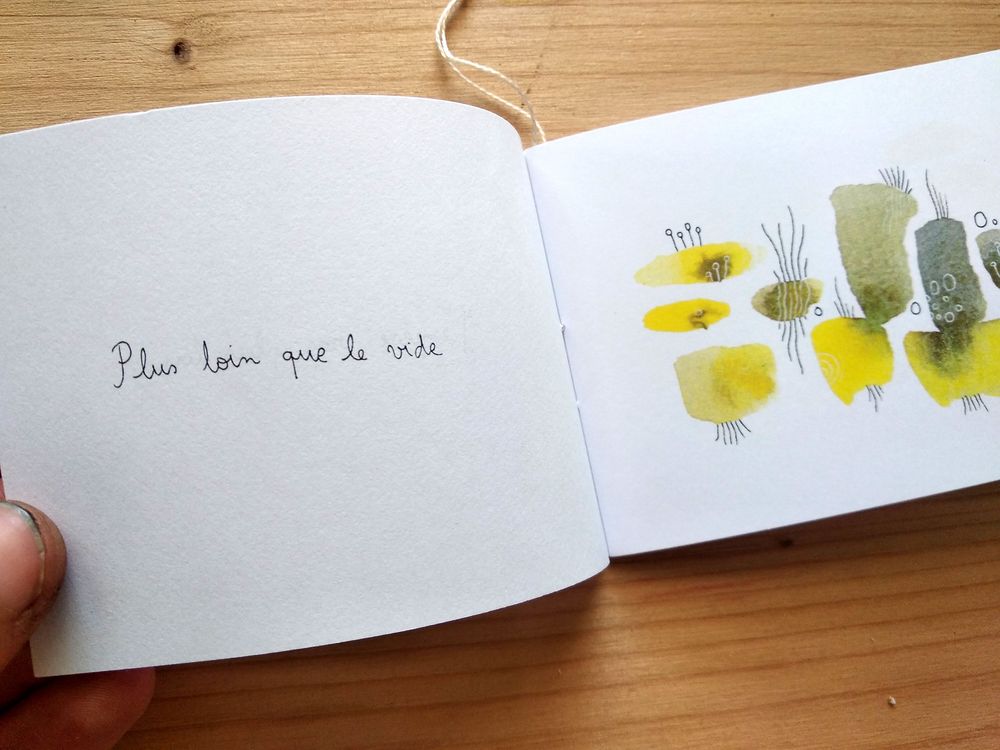 Plus loin que le vide